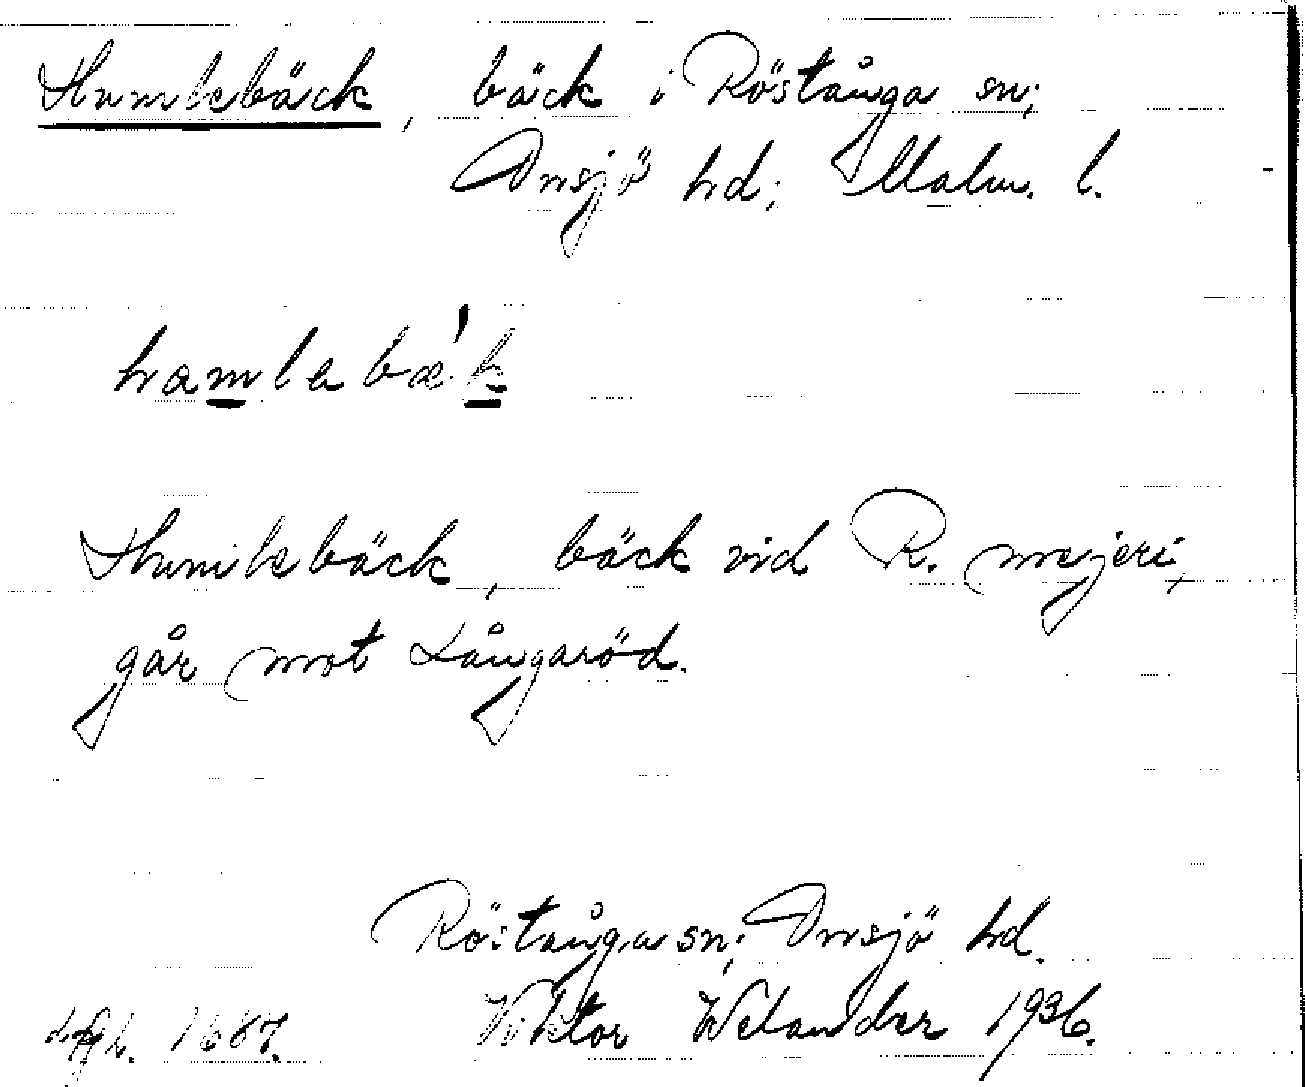 Humlebäck, bäck i Röstånga sn;
Onsjö hd; Malm. l.
hamlabæ'k
Humlebäck, bäck vid R. mejeri,
går mot Långaröd.
Röstånga sn; Onsjö hd.
1667. Viktor Welander 1936.